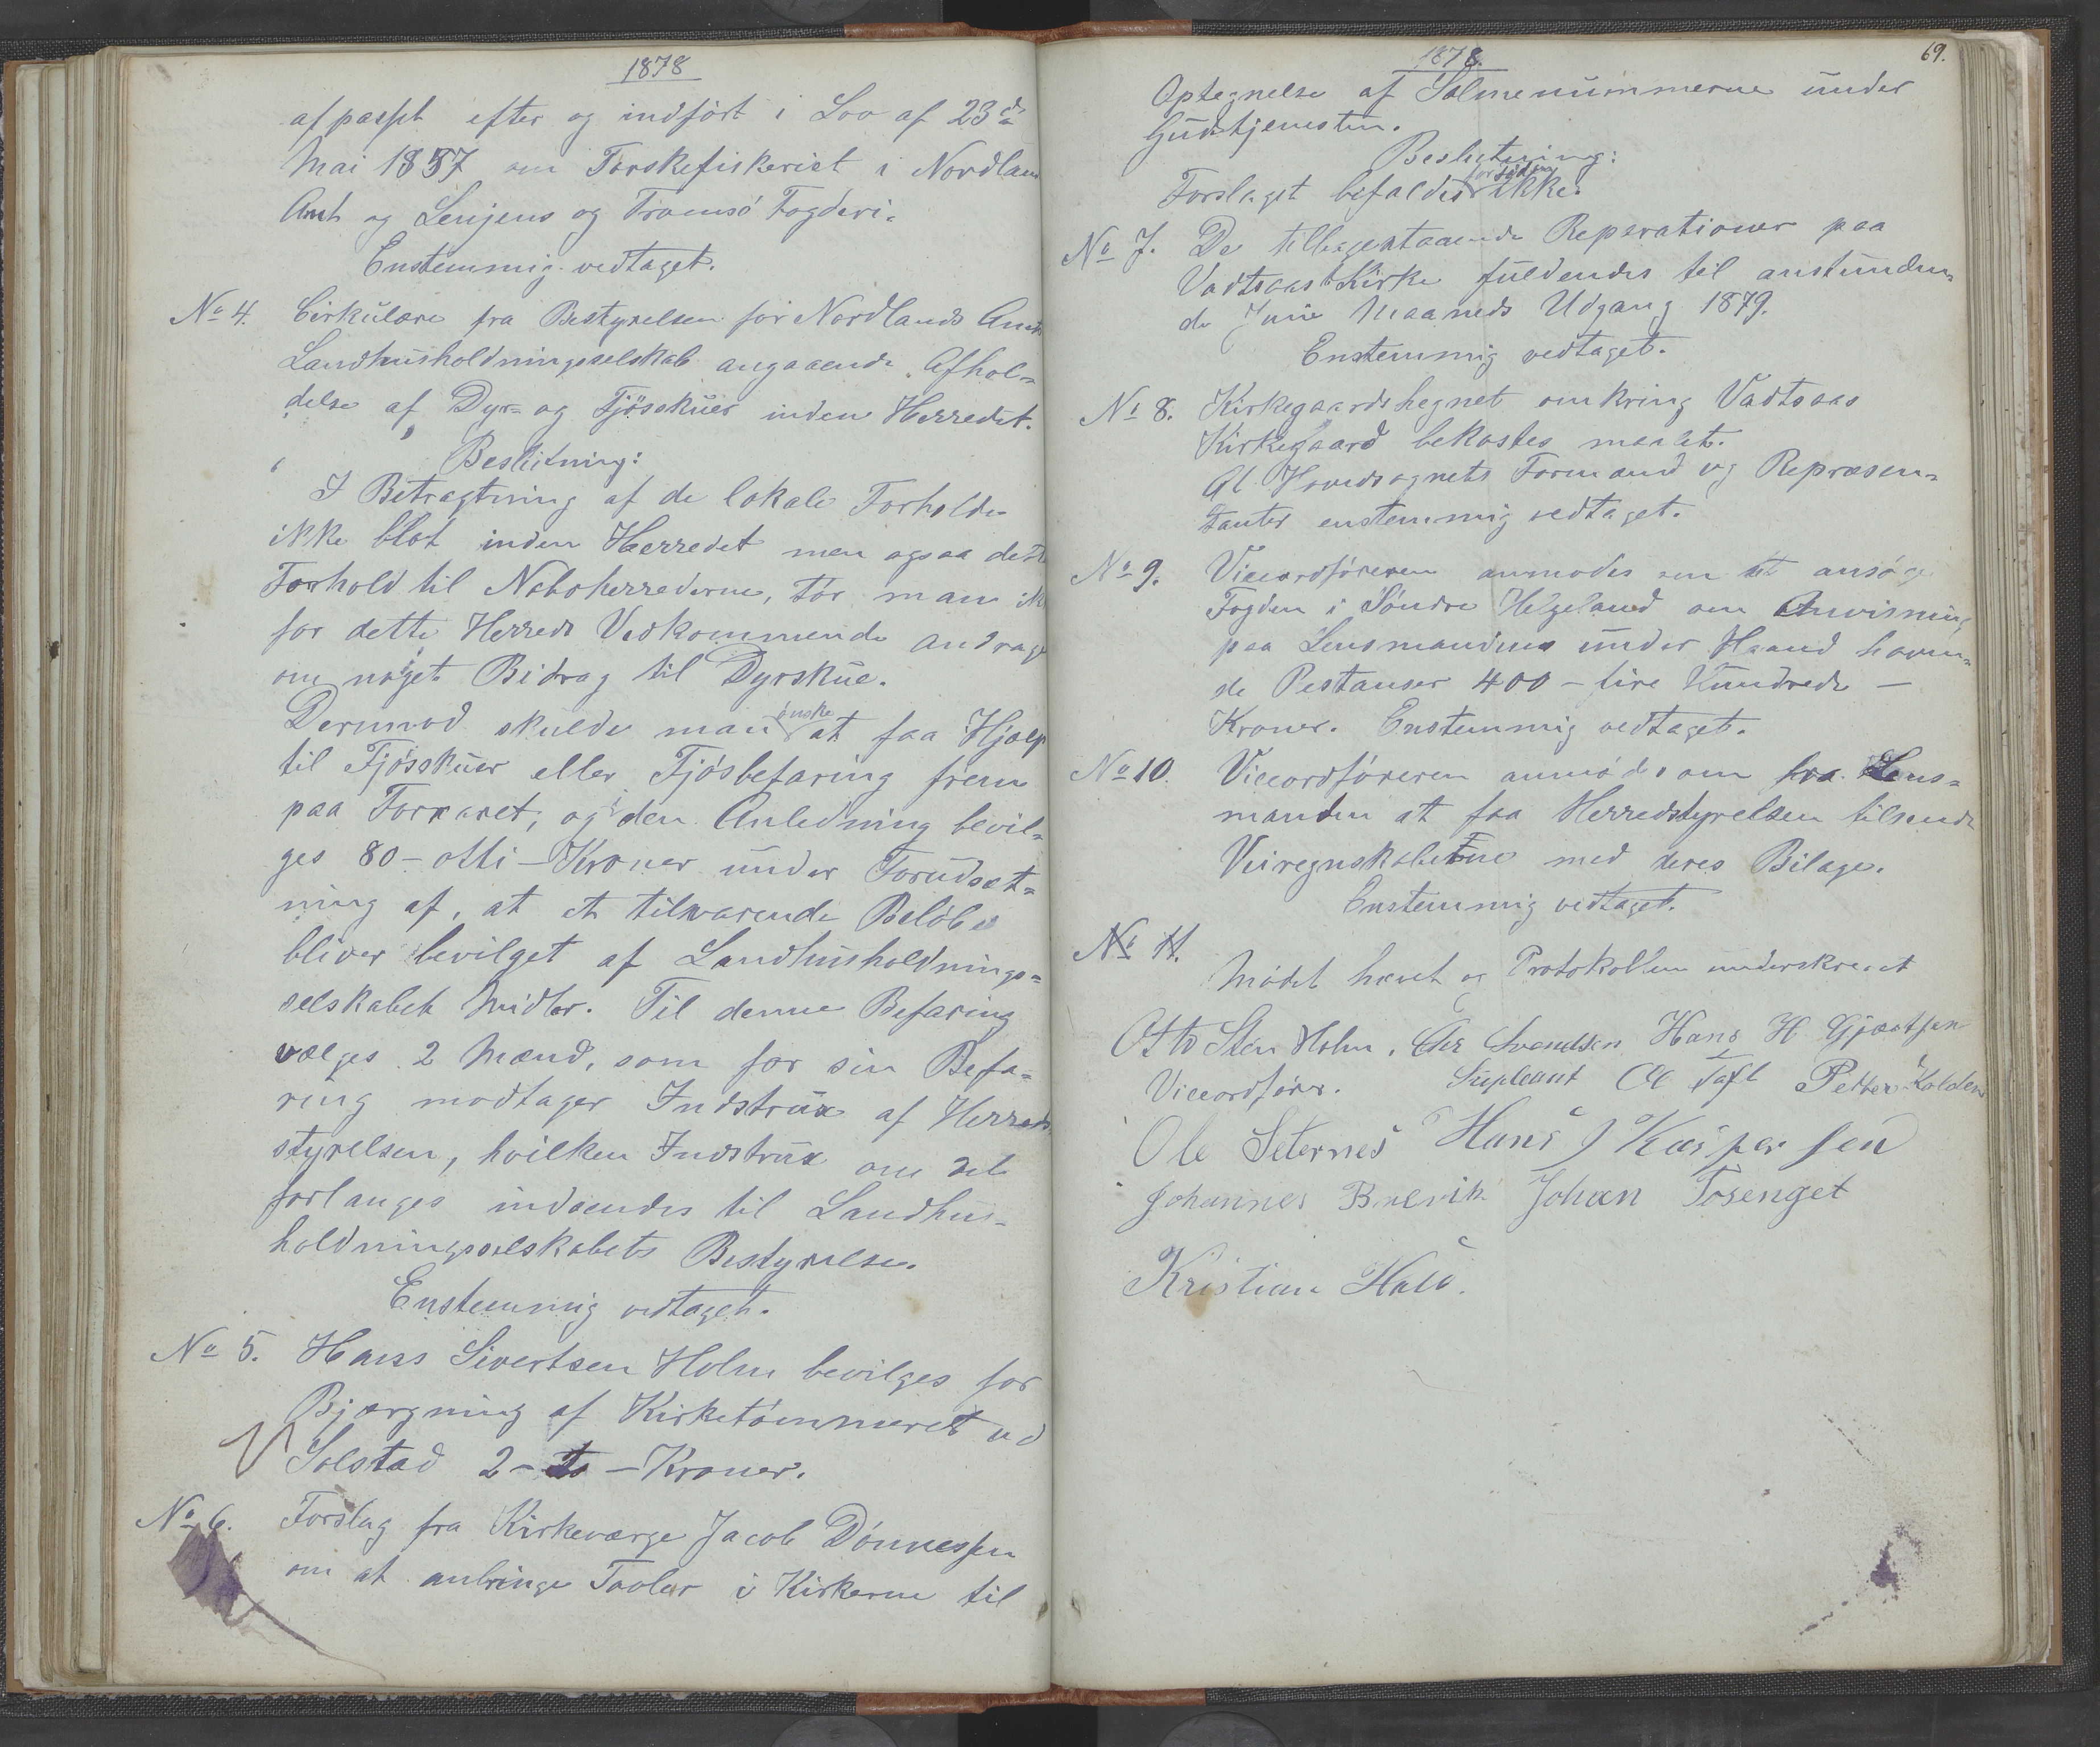 1878
afpasset efter og indført i Lov af 23de
Mai 1857 om Torskefiskeriet i Nordlands
Amt og Senjens og Tromsø Fogderi.
Enstemmig vedtaget.
No 4. Cirkulære fra Bestyrelsen for Nordlands Amts
Landhusholdningsselskab angaaende Afhol=
delse af Dyr= og Fjøsskuer inden Herredet.
Beslutning:
I Betragtning af de lokale Forholde
ikke blot inden Herredet men ogsaa dets
Forhold til Naboherrederne, tør man ikke
for dette Herreds Vedkommende andrage
om noget Bidrag til Dyrskue.
Dermod skulde man ønske at faa Hjælp
til Fjøsskuer eller Fjøsbefaring frem
paa Foraaret, og i den Anledning bevil=
ges 80 - otti - Kroner under Forudsæt=
ning af, at et tilsvarende Beløb
bliver bevilget af Landhusholdnings=
selskabets Midler. Til denne Befaring
vælges 2 Mænd, som for sin Befa=
ring modtager Indstrux af Herreds
styrelsen, hvilken Indstrux om det
forlanges indsendes til Landhus=
holdningsselskabets Bestyrelse.
Enstemmig vedtaget.
No 5. Hans Sivertsen Holm bevilges for
Bjærgning af Kirketømmeret ved
Solstad 2 - to - Kroner.
No 6. Forslag fra Kirkeværge Jacob Dønnessen
om at anbringe Tavler i Kirkerne til
1878. 69.
Optegnelse af Salmenummerne under
Gudstjenesten.
Beslutning:
Forslaget befaldes fortiden ikke.
No 7. De tilbagestaaende Reparationer paa
Vadtsaas Kirke fuldendes til anstunden=
de Juni Maaneds Udgang 1879.
Enstemmig vedtaget.
No 8. Kirkegaardshegnet omkring Vadtsaas
Kirkegaard bekostes malet.
Af Hovedsognets Formænd og Repræsen=
tanter enstemmig vedtaget.
No 9. Viceordføreren anmodes om at ansøge
Fogden i Søndre Helgeland om Anvisning
paa Lensmandens under Haand haven=
de Restanser 400 - fire Hundrede -
Kroner. Enstemmig vedtaget.
No 10. Viceordføreren anmodes om fra Lens=
manden at faa Herredstyrelsen tilsendt
Veiregnskaberne med deres Bilage.
Enstemmig vedtaget.
No 11.
Mødet hævet og Protokollen underskrevet
Otto Sten Holm. Chr Svendsen Hans H. Gjærtsen
Viceordfører. Supleant Ol Toft Petter Kolden
Ole Seternes Hans J Kaspersen
Johannes Brevik Johan Tosenget
Kristian Hald.